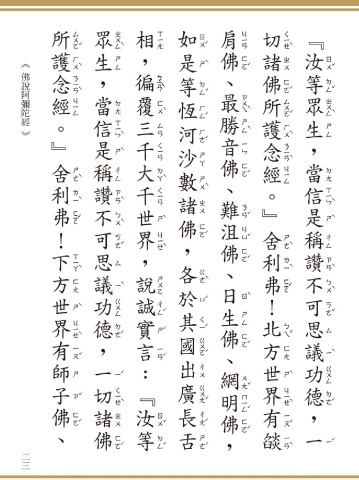 『汝等眾生,當信是稱讚不可思議功德,一
切諸佛所護念經。』舍利弗!北方世界有燄
肩佛、最勝音佛、難沮佛、日生佛、網明佛,
如是等恆河沙數諸佛,各於其國出廣長舌
相,徧覆三千大千世界,說誠實言:『汝等
眾生,當信是稱讚不可思議功德,一切諸佛
所護念經。』舍利弗!下方世界有師子佛、
《佛說阿彌陀經》
二三